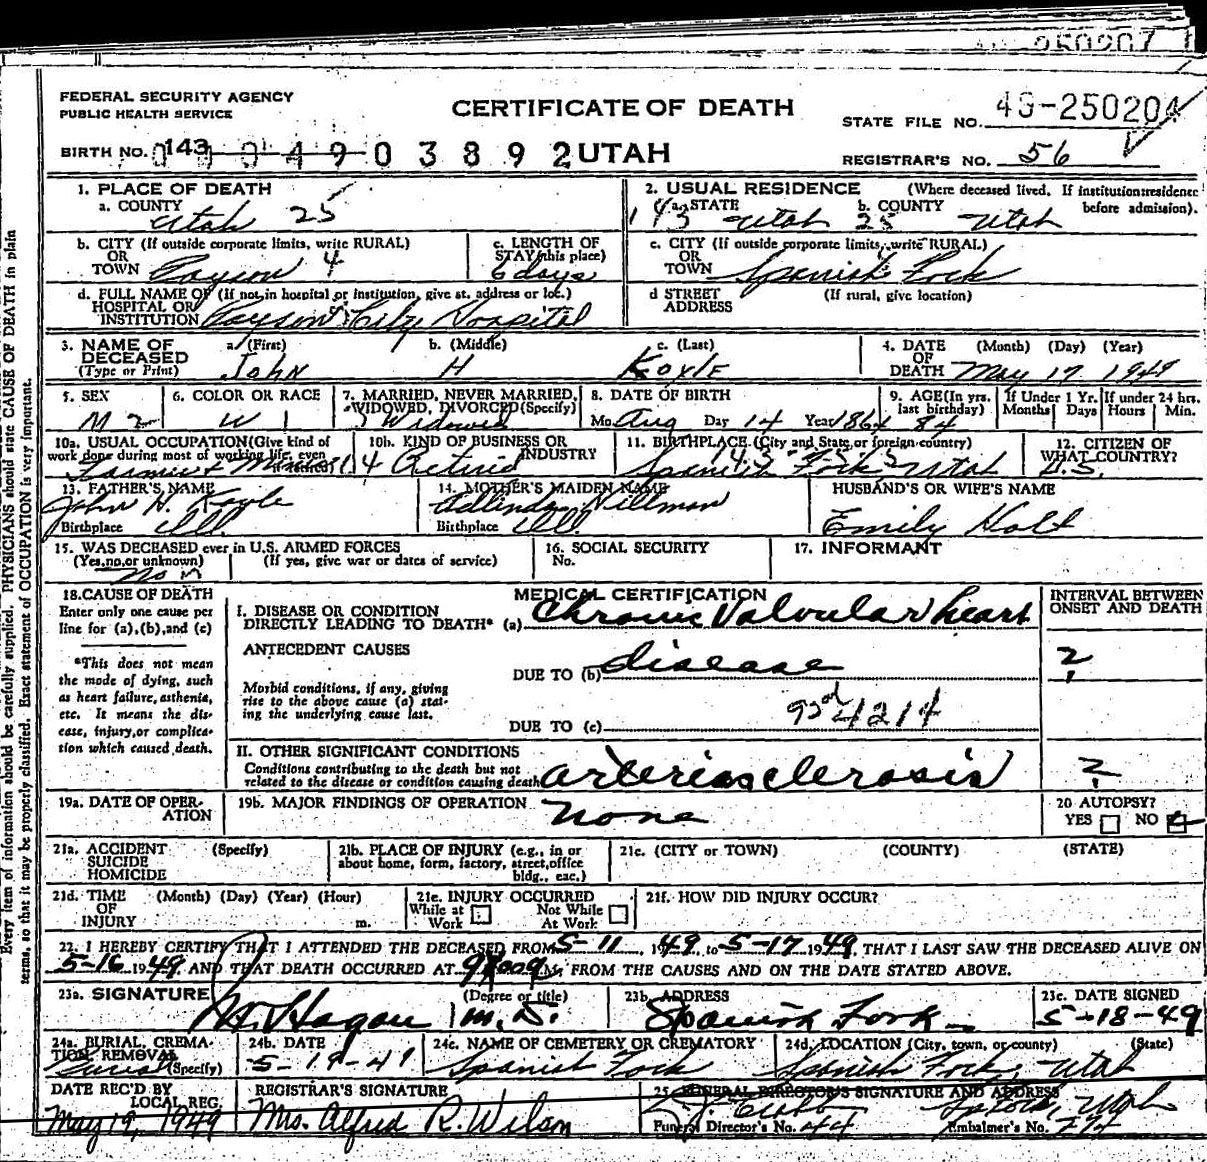 250207
FEDERAL SECURITY AGENCY
PUBLIC HEALTH SERVICE
CERTIFICATE OF DEATH
STATE FILE NO. 49-250204
BIRTH NO. 143 0 4 9 0 3 8 9 2 UTAH
REGISTRAR'S NO. 56
1. PLACE OF DEATH
a. COUNTY
Utah 25
2. USUAL RESIDENCE (Where deceased lived. If institution: residence before admission).
143 a. STATE Utah 25 b. COUNTY Utah
b. CITY (If outside corporate limits, write RURAL)
OR
TOWN Payson 4
c. LENGTH OF
STAY (this place)
6 days
c. CITY (If outside corporate limits, write RURAL)
OR
TOWN Spanish Fork
d. FULL NAME OF (If not in hospital or institution, give st. address or loc.)
HOSPITAL OR
INSTITUTION Payson City Hospital
d STREET (If rural, give location)
ADDRESS
3. NAME OF DECEASED (Type or Print)
a. (First) b. (Middle) c. (Last)
John H Koyle
4. DATE OF DEATH (Month) (Day) (Year)
May 17 1949
5. SEX
M 2
6. COLOR OR RACE
W 1
7. MARRIED, NEVER MARRIED, WIDOWED, DIVORCED (Specify)
Widowed
8. DATE OF BIRTH
Mo. Aug Day 14 Year 1864
9. AGE (In yrs. last birthday)
84
If Under 1 Yr. Months Days
If under 24 hrs. Hours Min.
10a. USUAL OCCUPATION (Give kind of work done during most of working life, even
Farmer &
10b. KIND OF BUSINESS OR INDUSTRY
Retired
11. BIRTHPLACE (City and State, or foreign country)
Spanish Fork Utah
12. CITIZEN OF WHAT COUNTRY?
U.S.
13. FATHER'S NAME
John H. Koyle
Birthplace Ill.
14. MOTHER'S MAIDEN NAME
Adlinda Hillman
Birthplace Ill.
HUSBAND'S OR WIFE'S NAME
Emily Holt
15. WAS DECEASED ever in U.S. ARMED FORCES
(Yes, no, or unknown) (If yes, give war or dates of service)
No
16. SOCIAL SECURITY
No.
17. INFORMANT
18. CAUSE OF DEATH
Enter only one cause per line for (a), (b), and (c)
*This does not mean the mode of dying, such as heart failure, asthenia, etc. It means the disease, injury, or complication which caused death.
MEDICAL CERTIFICATION
INTERVAL BETWEEN ONSET AND DEATH
I. DISEASE OR CONDITION
DIRECTLY LEADING TO DEATH* (a) Chronic Valvular heart
ANTECEDENT CAUSES
DUE TO (b) disease ?
Morbid conditions, if any, giving rise to the above cause (a) stating the underlying cause last.
92d 4214
DUE TO (c)
II. OTHER SIGNIFICANT CONDITIONS
Conditions contributing to the death but not related to the disease or condition causing death arteriosclerosis ?
19a. DATE OF OPERATION
19b. MAJOR FINDINGS OF OPERATION
None
20 AUTOPSY?
YES NO
21a. ACCIDENT (Specify)
SUICIDE
HOMICIDE
21b. PLACE OF INJURY (e.g., in or about home, form, factory, street, office bldg., eac.)
21c. (CITY or TOWN) (COUNTY) (STATE)
21d. TIME (Month) (Day) (Year) (Hour)
OF
INJURY m.
21e. INJURY OCCURRED
While at Work Not While At Work
21f. HOW DID INJURY OCCUR?
22. I HEREBY CERTIFY THAT I ATTENDED THE DECEASED FROM 5-11, 1949, to 5-17 1949, THAT I LAST SAW THE DECEASED ALIVE ON
5-16 1949 AND THAT DEATH OCCURRED AT M, FROM THE CAUSES AND ON THE DATE STATED ABOVE.
23a. SIGNATURE (Degree or title)
Hagan M.D.
23b. ADDRESS
Spanish Fork
23c. DATE SIGNED
5-18-49
24a. BURIAL, CREMATION, REMOVAL (Specify)
Burial
24b. DATE
5-19-49
24c. NAME OF CEMETERY OR CREMATORY
Spanish Fork
24d. LOCATION (City, town, or county) (State)
Spanish Fork, Utah
DATE REC'D BY LOCAL REG.
May 19, 1949
REGISTRAR'S SIGNATURE
Mrs. Alfred R. Wilson
25. FUNERAL DIRECTOR'S SIGNATURE AND ADDRESS
Utah
Funeral Director's No. 44 Embalmer's No.
Every item of information should be carefully supplied. PHYSICIANS should state CAUSE OF DEATH in plain
terms, so that it may be properly classified. Exact statement of OCCUPATION is very important.